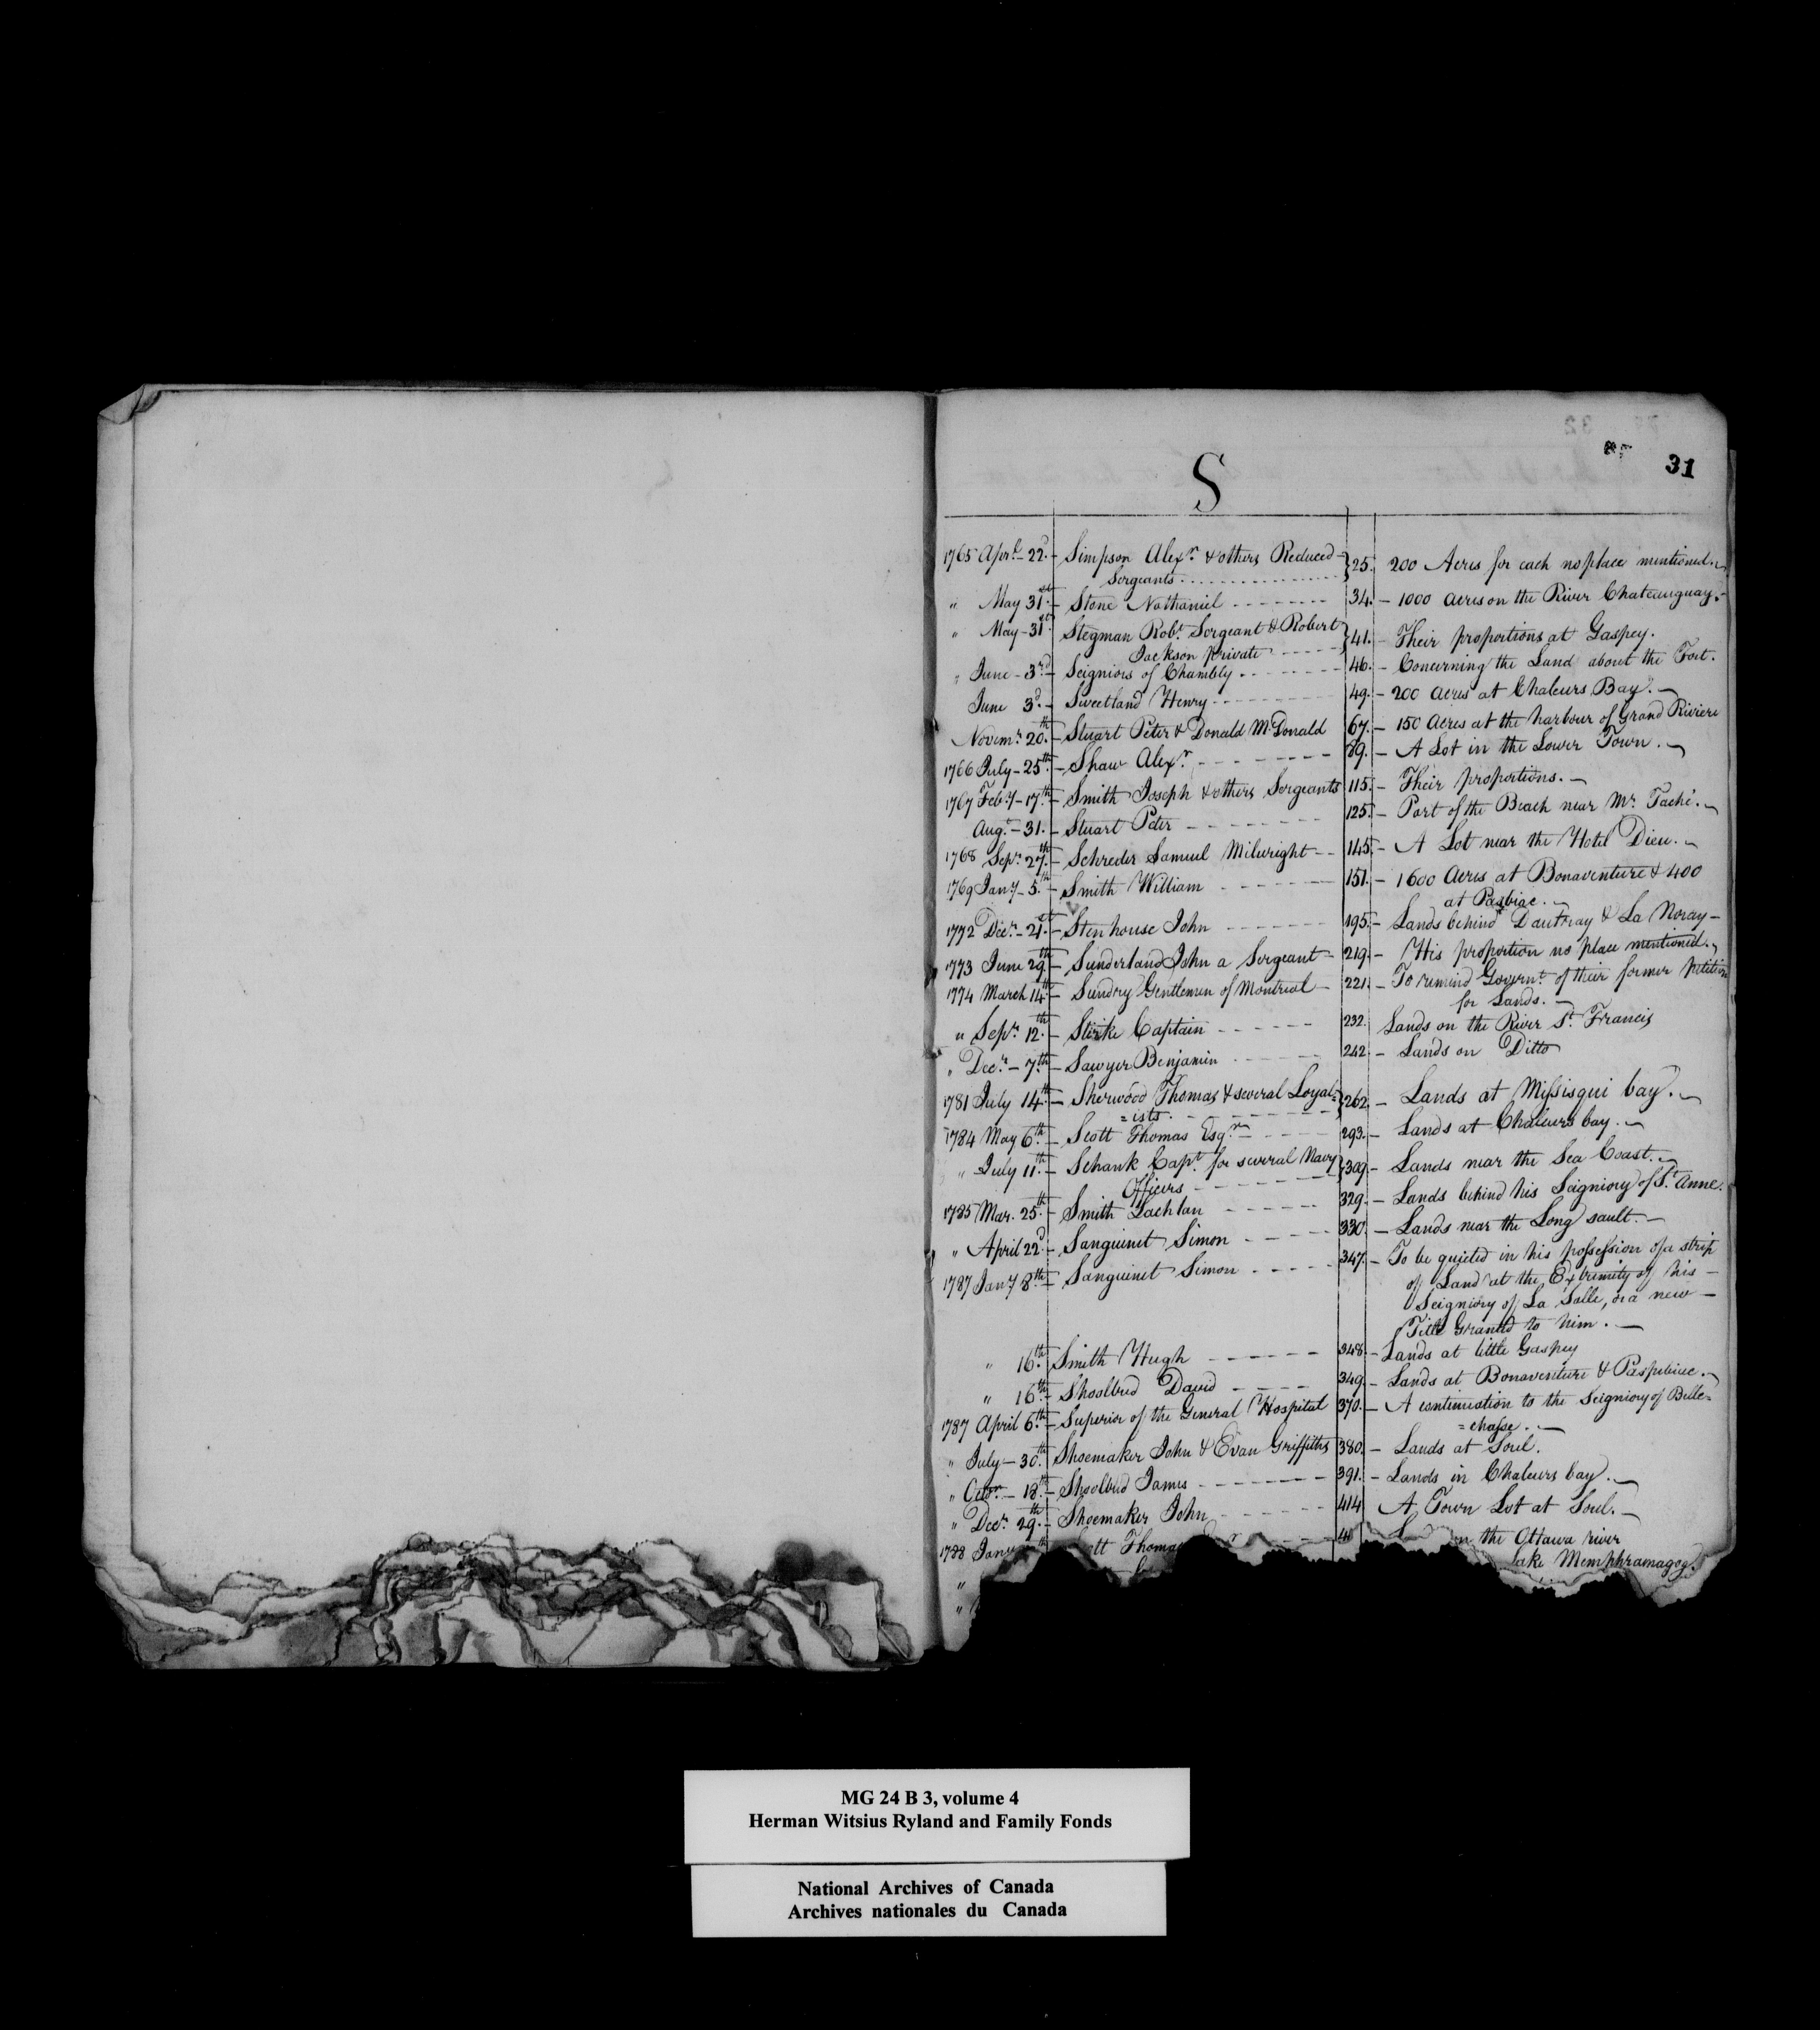 31
S
1765 Aprl. 22d. - Simpson Alexr. & others Reduced 25. 200 Acres for each no place mentioned.
Sergeants
" May 31st. - Stone Nathaniel 34. - 1000 acres on the River Chateauguay.
" May - 31st. Stegman Robt. Sergeant & Robert 41. - Their proportions at Gaspey.
Jackson Private
" June - 3rd. - Seigniors of Chambly 46. - Concerning the Land about the Fort.
June 3d. - Sweetland Henry 49. - 200 Acres at Chaleurs Bay.
Novemr. 20th. - Stuart Peter & Donald McDonald 67. - 150 Acres at the harbour of Grand Riviere
1766 July - 25th. - Shaw Alexr. 89. - A Lot in the Lower Town.
1767 Feby - 17th. - Smith Joseph & others Sergeants 115. - Their proportions.
Augt. - 31. - Stuart Peter 125. - Part of the Beach near Mr. Taché.
1768 Sepr. 27th. - Schreder Samuel Milwright 145. - A Lot near the Hotel Dieu.
1769 Jany - 5th. - Smith William 151. - 1600 Acres at Bonaventure & 400
at Pasbiac.
1772 Decr. - 21st. - Stenhouse John 195. - Lands behind Dautray & La Noray -
1773 June 29th. - Sunderland John a Sergeant 219. - His proportion no place mentioned.
1774 March 14th. - Sundry Gentlemen of Montreal 221. - To remind Governt. of their former petition
for Lands.
" Sepr. 12th. - Stirke Captain 232. Lands on the River St. Francis
" Decr. - 7th. - Sawyer Benjamin 242. - Lands on Ditto
1781 July 14th. - Sherwood Thomas & several Loyal= 262. - Lands at Missisqui bay.
=ists.
1784 May 6th. - Scott Thomas Esqr. 293. - Lands at Chaleurs bay.
" July 11th. - Schank Capt. for several Navy 309. - Lands near the Sea Coast.
Officers
1785 Mar. 25th. - Smith Lachlan 329. - Lands behind his Seigniory of St. Anne.
" April 22d. - Sanguinet Simon 330. - Lands near the Long sault.
1787 Jany 8th. - Sanguinet Simon 347. - To be quieted in his possession of a strip
of Land at the Extremity of his -
Seigniory of La Salle, or a new -
Title Granted to him.
" 16th. Smith Hugh 348. - Lands at little Gaspey
" 16th. - Shoolbred David 349. - Lands at Bonaventure & Paspebiac.
1787 April 6th. - Superior of the General Hospital 370. - A continuation to the Seigniory of Belle=
=chasse.
" July - 30th. Shoemaker John & Evan Griffiths 380. - Lands at Sorel.
" Octor. - 18th. - Shoolbred James 391. - Lands in Chaleurs bay.
" Decr. 29th. - Shoemaker John 414. A Town Lot at Sorel.
1788 Jany Thomas the Ottawa river
" lake Memphramagog.
"
MG 24 B 3, volume 4
Herman Witsius Ryland and Family Fonds
National Archives of Canada
Archives nationales du Canada